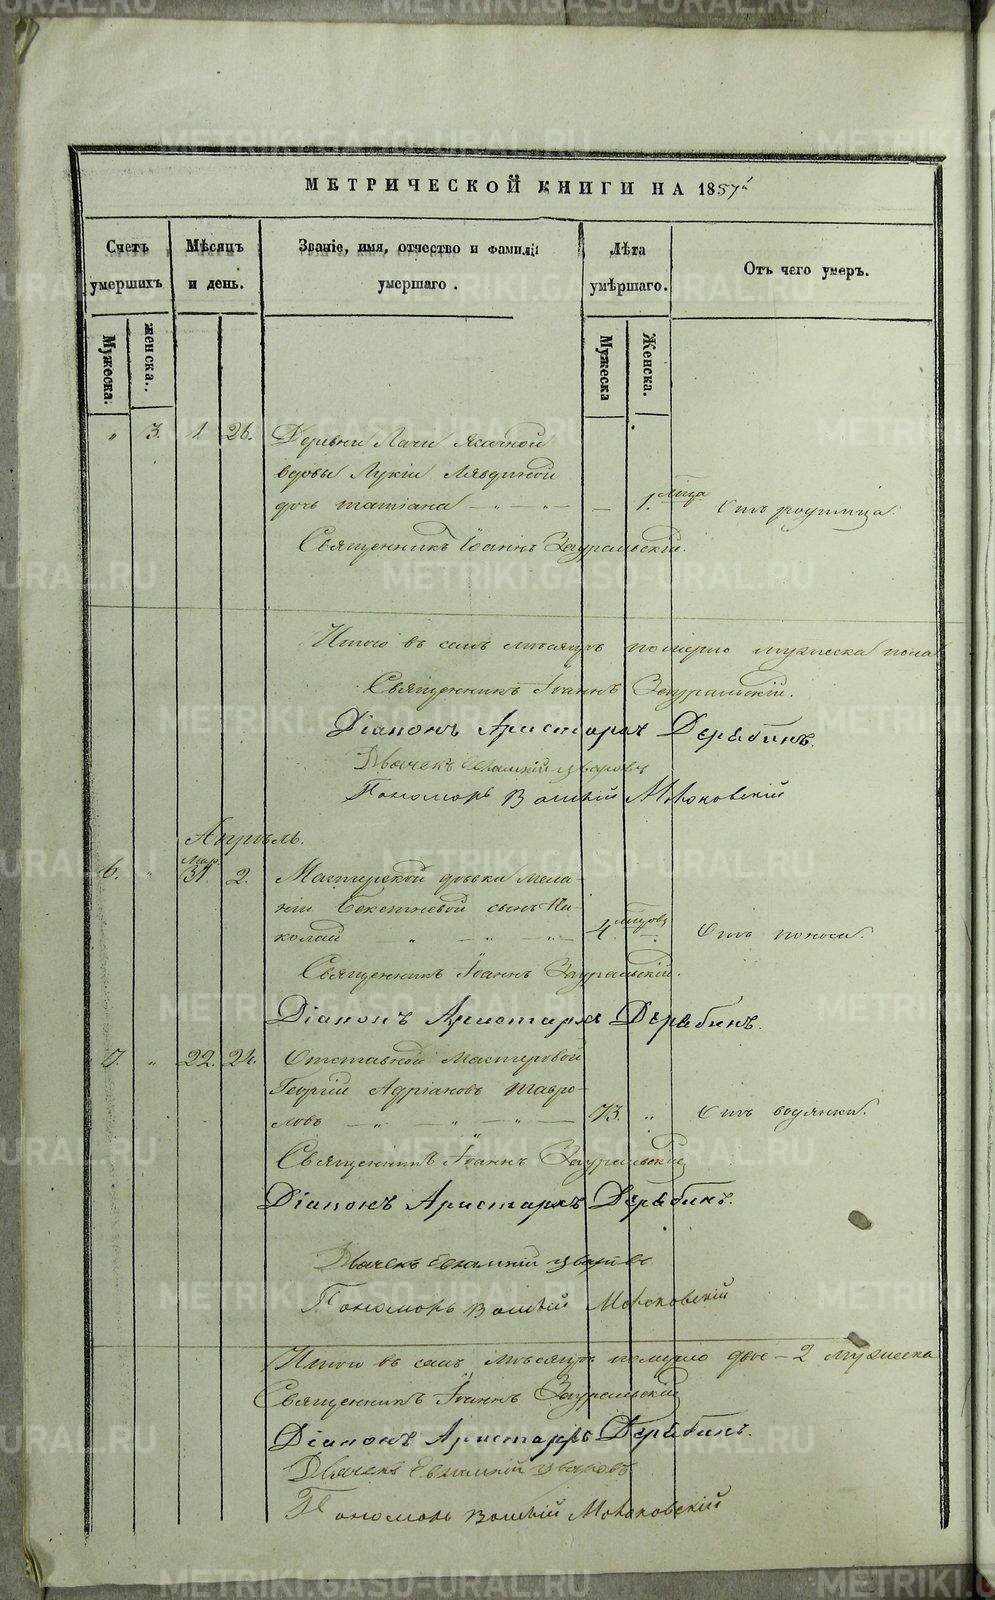 МЕТРИЧЕСКОЙ КНИГИ НА 1857й
Счетъ умершихъ
Мѣсяцъ и день.
Званіе, имя, отчество и фамилія умершаго.
Лѣта умѣршаго.
Отъ чего умеръ.
Мужеска.
женска.
Мужеска
Женска.
" 3. 1. 26. Деревни
вдовы Лукіи
дочь татіана — " — " — — 1. года Отъ родимца.
Священникъ Іоаннъ Зауральскій.
Итого въ семъ мѣсяцѣ померло мужеска пола
Священникъ Іоаннъ Зауральскій.
Діаконъ Аристархъ Дерябинъ.
Дьячекъ
Пономарь
Апрѣль.
6. " Мар. 31. 2. Мастерской дѣвки Мела-
ніи сынъ Ни-
колай — " — " — " — 4. Отъ поноса.
Священникъ Іоаннъ Зауральскій.
Діаконъ Аристархъ Дерябинъ.
7. " 22. 24. Отставной Мастеровой
Георгій Адріановъ Тавро-
ловъ — " — " — " — 73. " Отъ водянки.
Священникъ Іоаннъ Зауральскій
Діаконъ Аристархъ Дерябинъ.
Дьячекъ
Пономарь
Итого въ семъ мѣсяцѣ померло двое – 2 мужеска
Священникъ Іоаннъ Зауральскій
Діаконъ Аристархъ Дерябинъ.
Дьячекъ
Пономарь
METRIKI.GASO-URAL.RU